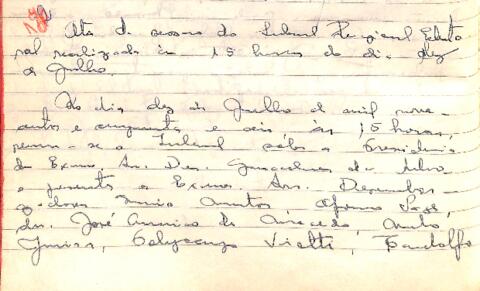 Ata da sessão do Tribunal Regional Eleito
ral realizada às 15 horas do dia dez
de Julho.
Ao dia dez de Julho de mil nove-
centos e cinquenta e seis às 15 horas,
reuniu-se o Tribunal sob a Presidencia
do Exmo. Sr. Des. Gonçalves da Silva
e presentes os Exmos. Srs. Desembar-
gadores
drs. José Americo de Macedo,
Junior, Polycarpo Viotti, Pandolfo